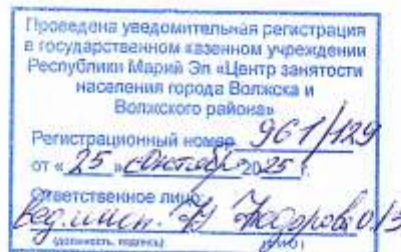 Проведена уведомительная регистрация
в государственном казенном учреждении
Республики Марий Эл «Центр занятости
населения города Волжска и
Волжского района»
Регистрационный номер 961/129
от « 25 » 2025 г.
Ответственное лицо
вед. инсп.
(должность, подпись) (ФИО)